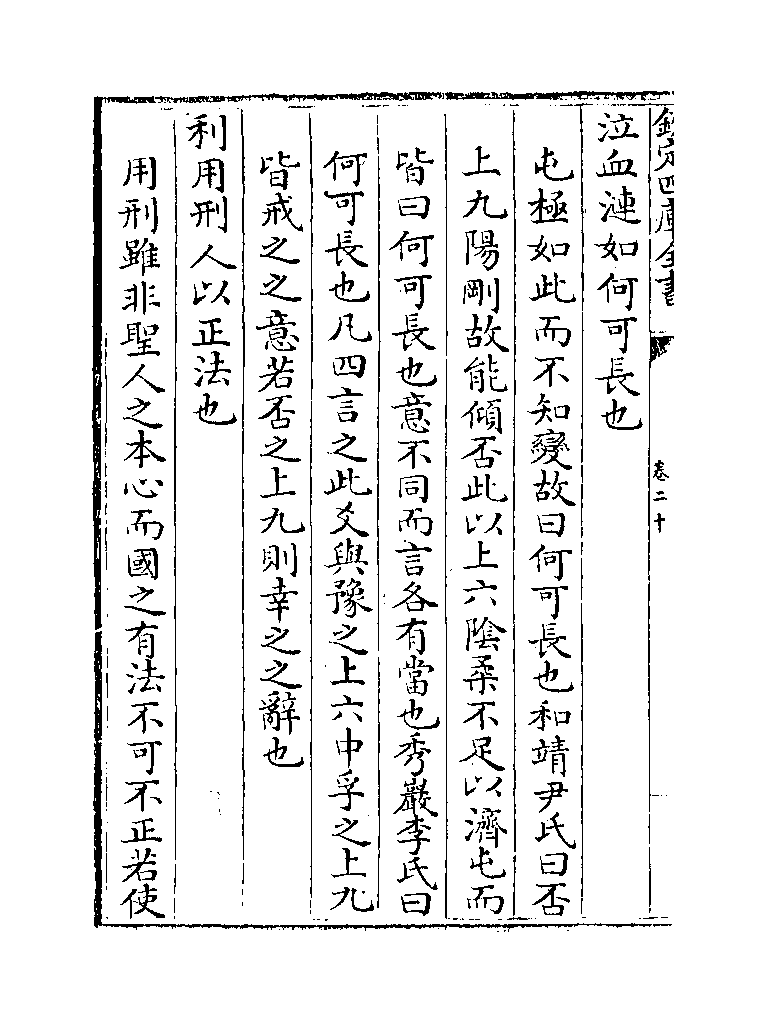 欽定四庫全書
卷二十
泣血漣如何可長也
屯極如此而不知變故曰何可長也和靖尹氏曰否
上九陽剛故能傾否此以上六陰柔不足以濟屯而
皆曰何可長也意不同而言各有當也秀巖李氏曰
何可長也凡四言之此爻與豫之上六中孚之上九
皆戒之之意若否之上九則幸之之辭也
利用刑人以正法也
用刑雖非聖人之本心而國之有法不可不正若使